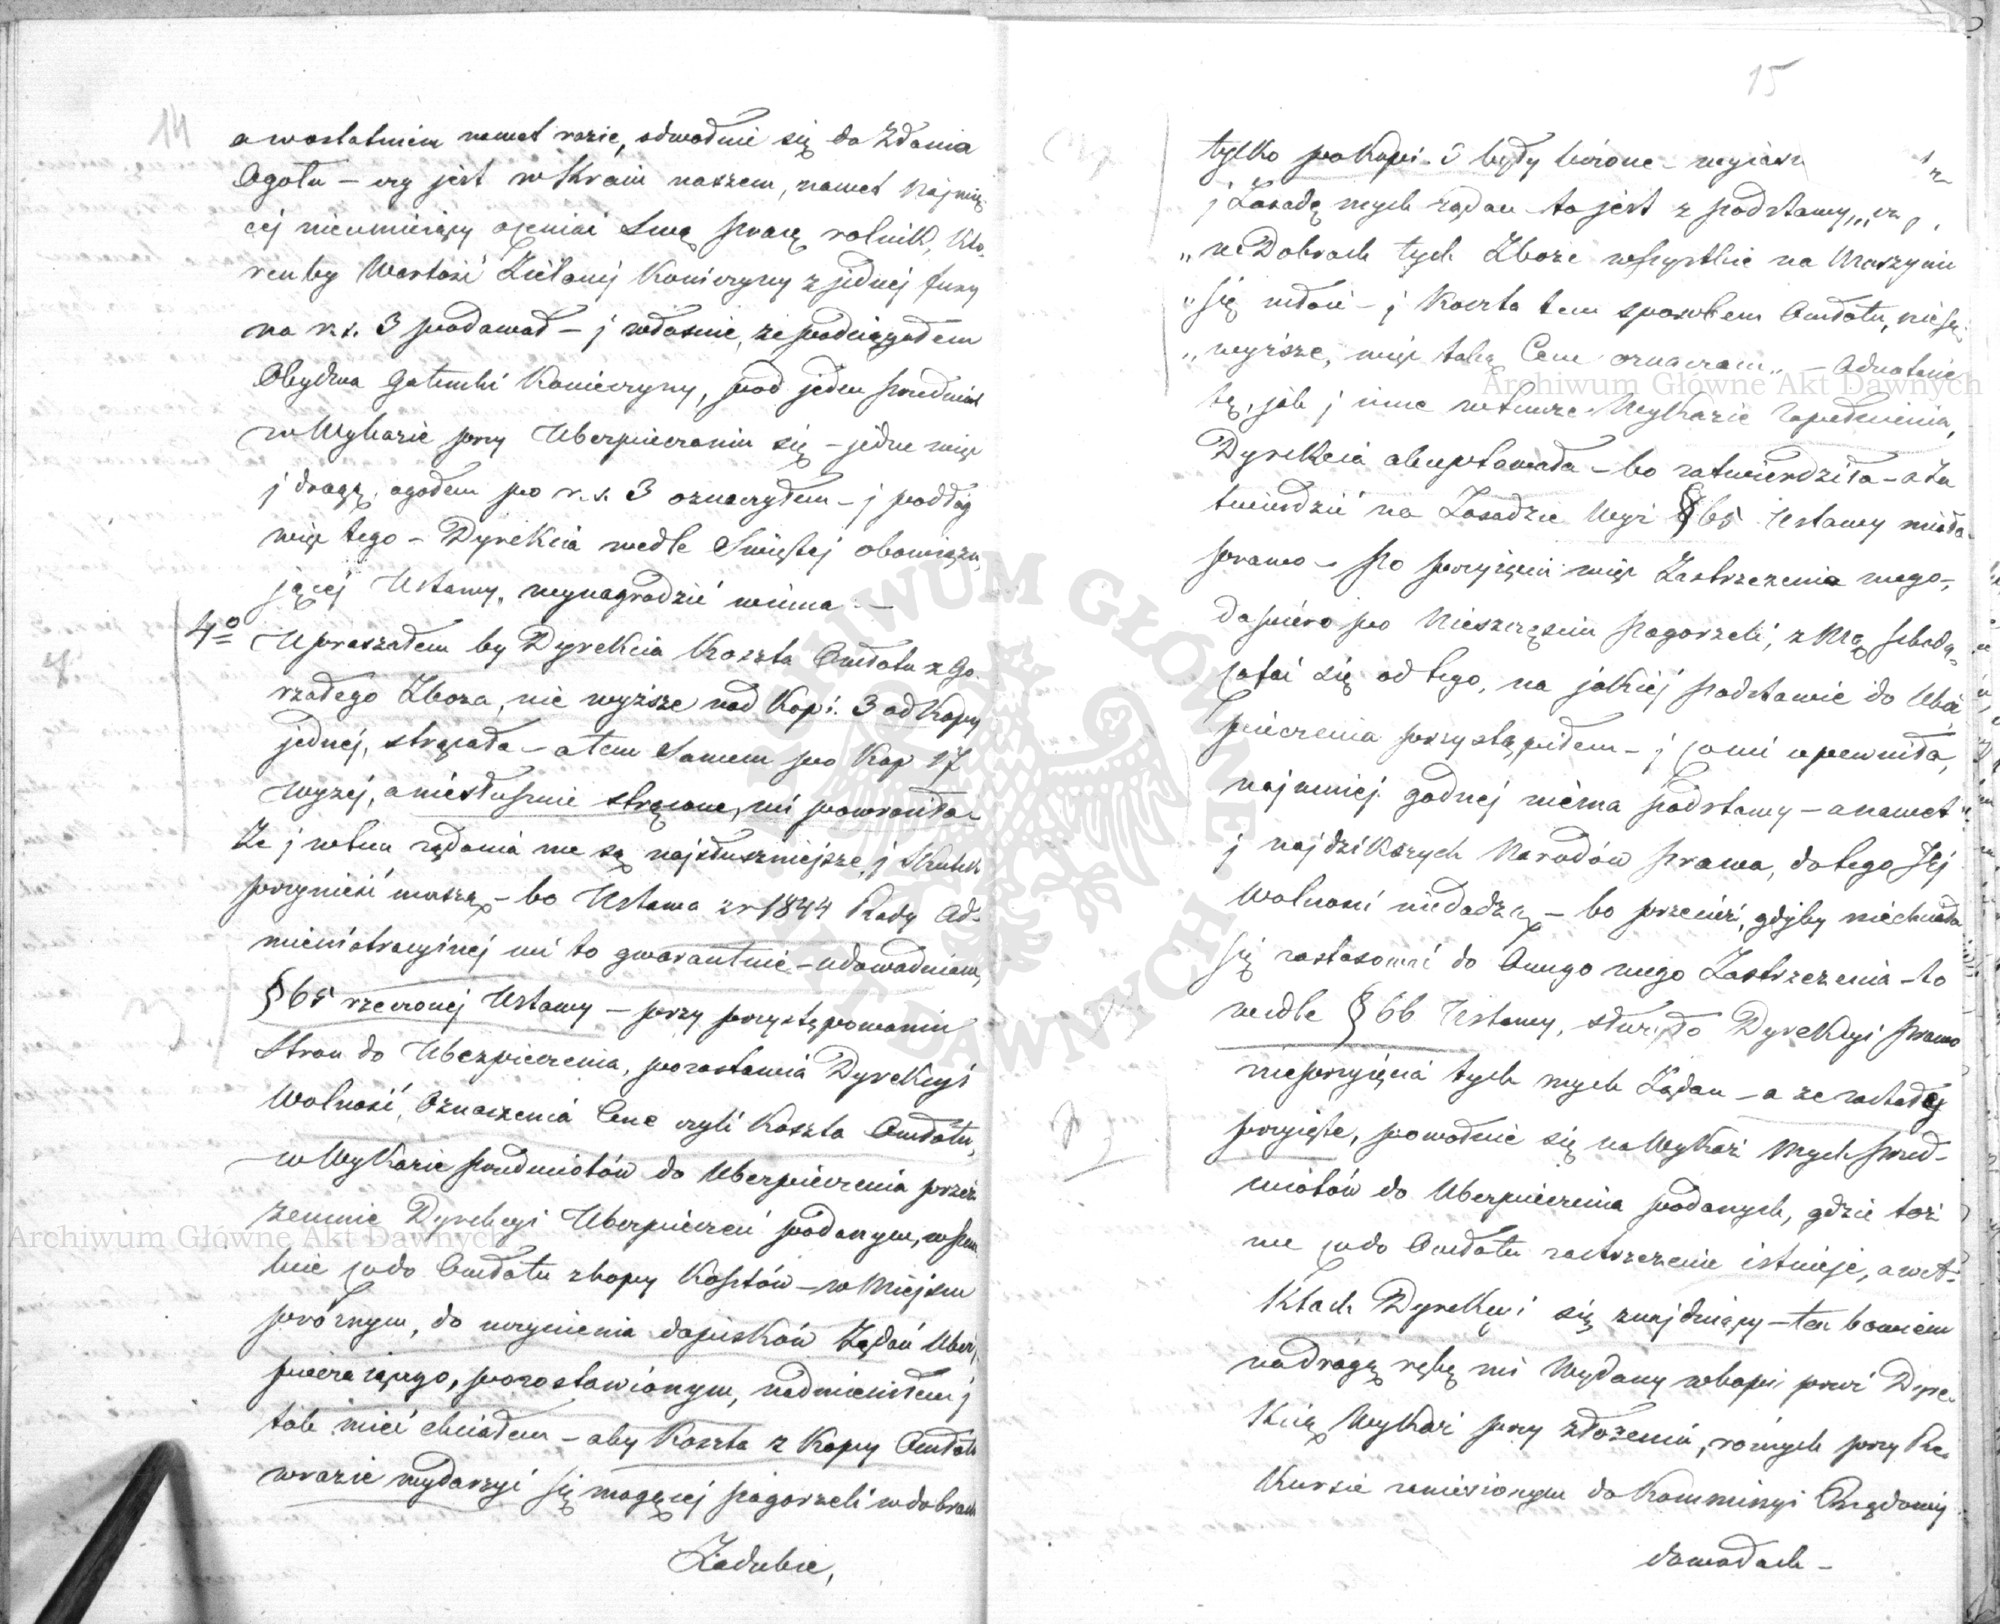 14
a wostatnim nawet razie, odwołuie się do Zdania
Ogółu – czy jest w Kraiu naszem, nawet Najmię
cej nieumieiący oceniać Swą pracę rolnik, któ
renby Wartość Zielonej Koniczyny z jednej fury
na r.s. 3 podawał – j właśnie, że podciągałem
Obydwa gatunki Koniczyny, pod jeden przedmiot
w Wykazie przy Ubezpieczaniu się – jedne więc
j drugą, ogółem po r.s. 3 oznaczyłem – j podług
więc tego – Dyrekcia wedle Swiętej obowiązu
jącej Ustawy, wynagrodzić winna –
4o Upraszałem by Dyrekcia Koszta Omłotu z Go
rzałego Zboża, nie wyższe nad Kopi. 3 od Kopy
jednej, strącała – a tem Samem po Kop 17
wyżej, a niesłusznie strącone, mi powróciła –
Że j w tem żądania me są najsłuszniejsze, j Skutek
przynieść muszą – bo Ustawa z r 1844 Rady Ad-
ministracyinej mi to gwarantuie – udowadniam,
§ 65 rzeczonej Ustawy – przy przystępowaniu
Stron do Ubezpieczenia, pozostawia Dyrekcyi
Wolność, Oznaczenia Cene czyli Koszta Omłotu,
– w Wykazie przedmiotów do Ubezpieczenia przez
zemnie Dyrekcyi Ubezpieczeń podanym, w
co do Omłotu z kopy Kosztów – w Miejscu
próżnym, do uczynienia dopisków Żądań Ubez
pieczaiącego, pozostawionym, nadmieniłem j
tak mieć chciałem – aby Koszta z Kopy Omłotu
wrazie wydarzyć się mogącej pogorzeli w dobrach
Zadubie,
15
tylko po Kopi. 3 były liczone –
j Zasadę mych żądań to jest z podstawy,
„ w Dobrach tych Zboże wszystkie na Maszynie
„ się młóci – j Koszta tem sposobem Omłotu, nie są
„ wyższe, więc taką Cene oznaczam „ – Adnotacie
tę, jak j inne w temże Wykazie zapełnienia,
Dyrekcia akceptowała – bo zatwierdziła – a Za
twierdzić na Zasadzie Wyż § 65 Ustawy miała
prawo – Po przyjęciu więc Zastrzeżenia mego –
dopiéro po Nieszczęściu Pogorzeli, z Nią
cofać się od tego, na jakiej podstawie do Ubez
pieczenia przystąpiłem – j co mi upewniła,
najmniej godnej niéma podstawy – a nawet
j najdzikszych Narodów prawa, do tego Jej
Wolności niedadzą – bo przecież, gdyby niechciała
się zastosować do Onego mego Zastrzeżenia – to
wedle § 66 Ustawy, służyło Dyrekcyi prawo
nieprzyjęcia tych mych Żądań – a że zostały
przyjęte, powołuie się na Wykaz Mych przed-
miotów do Ubezpieczenia podanych, gdzie toż
me co do Omłotu zastrzeżenie istnieje, a w A-
Ktach Dyrekcyi się znajduiący – ten bowiem
na drugą rękę mi Wydany w kopii przez Dyre
Kcią Wykaz przy złożeniu, różnych przy Re
Kursie zaniesionym do Kommissyi Rządowej
dowodach –